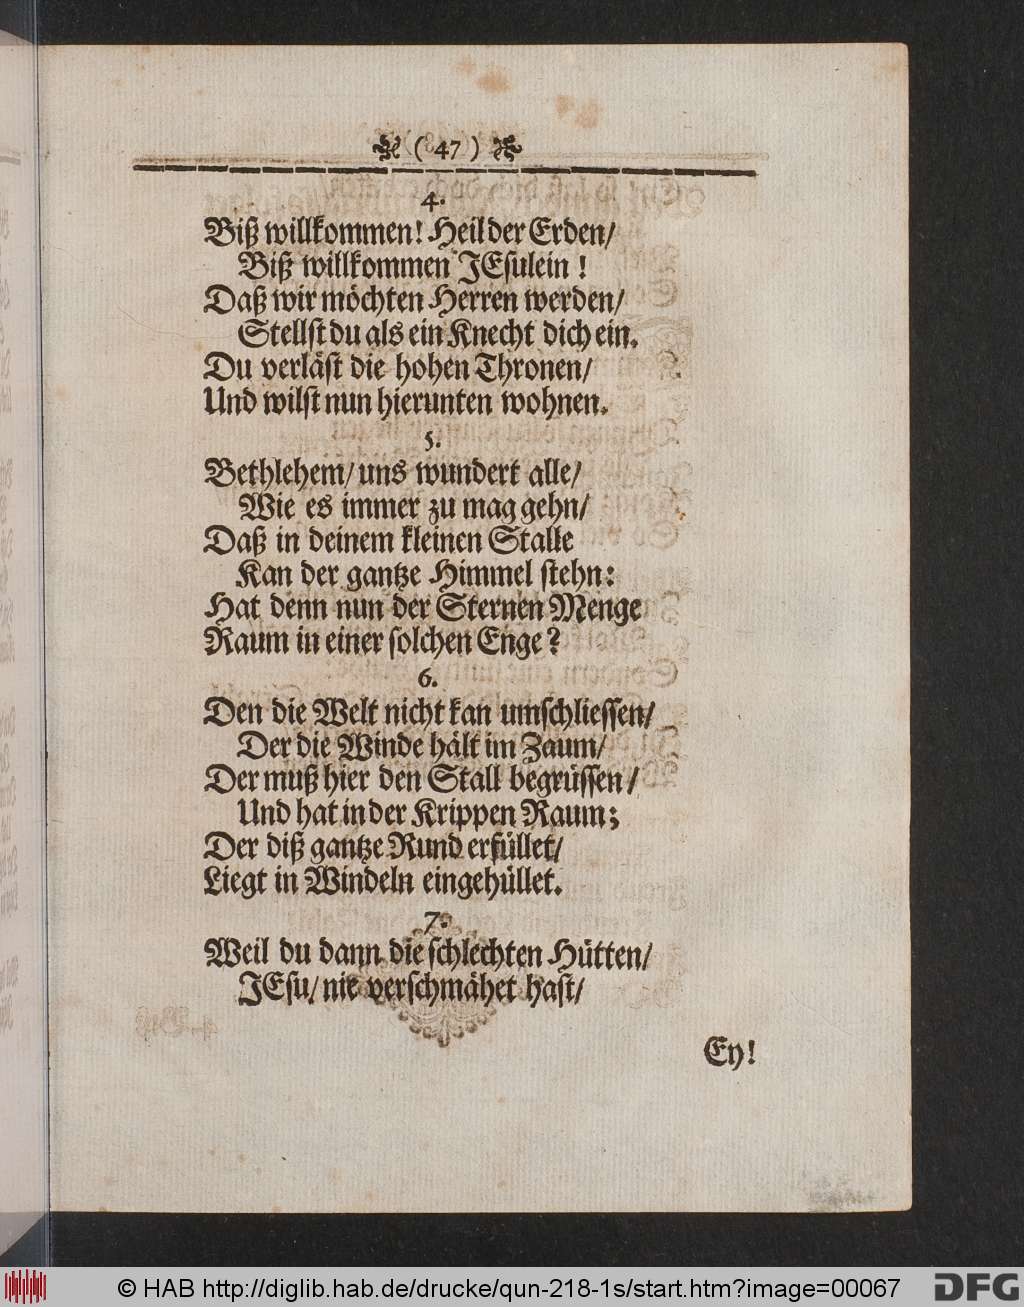 ( 47 )
4.
Biß willkommen! Heil der Erden/
Biß willkommen JEsulein !
Daß wir möchten Herren werden/
Stellst du als ein Knecht dich ein.
Du verläst die hohen Thronen/
Und wilst nun hierunten wohnen.
5.
Bethlehem/ uns wundert alle/
Wie es immer zu mag gehn/
Daß in deinem kleinen Stalle
Kan der gantze Himmel stehn:
Hat denn nun der Sternen Menge
Raum in einer solchen Enge?
6.
Den die Welt nicht kan umschliessen/
Der die Winde hält im Zaum/
Der muß hier den Stall begrüssen/
Und hat in der Krippen Raum;
Der diß gantze Rund erfüllet/
Liegt in Windeln eingehüllet.
7.
Weil du dann die schlechten Hütten/
JEsu/ nie verschmähet hast/
Ey!
© HAB http://diglib.hab.de/drucke/qun-218-1s/start.htm?image=00067
DFG